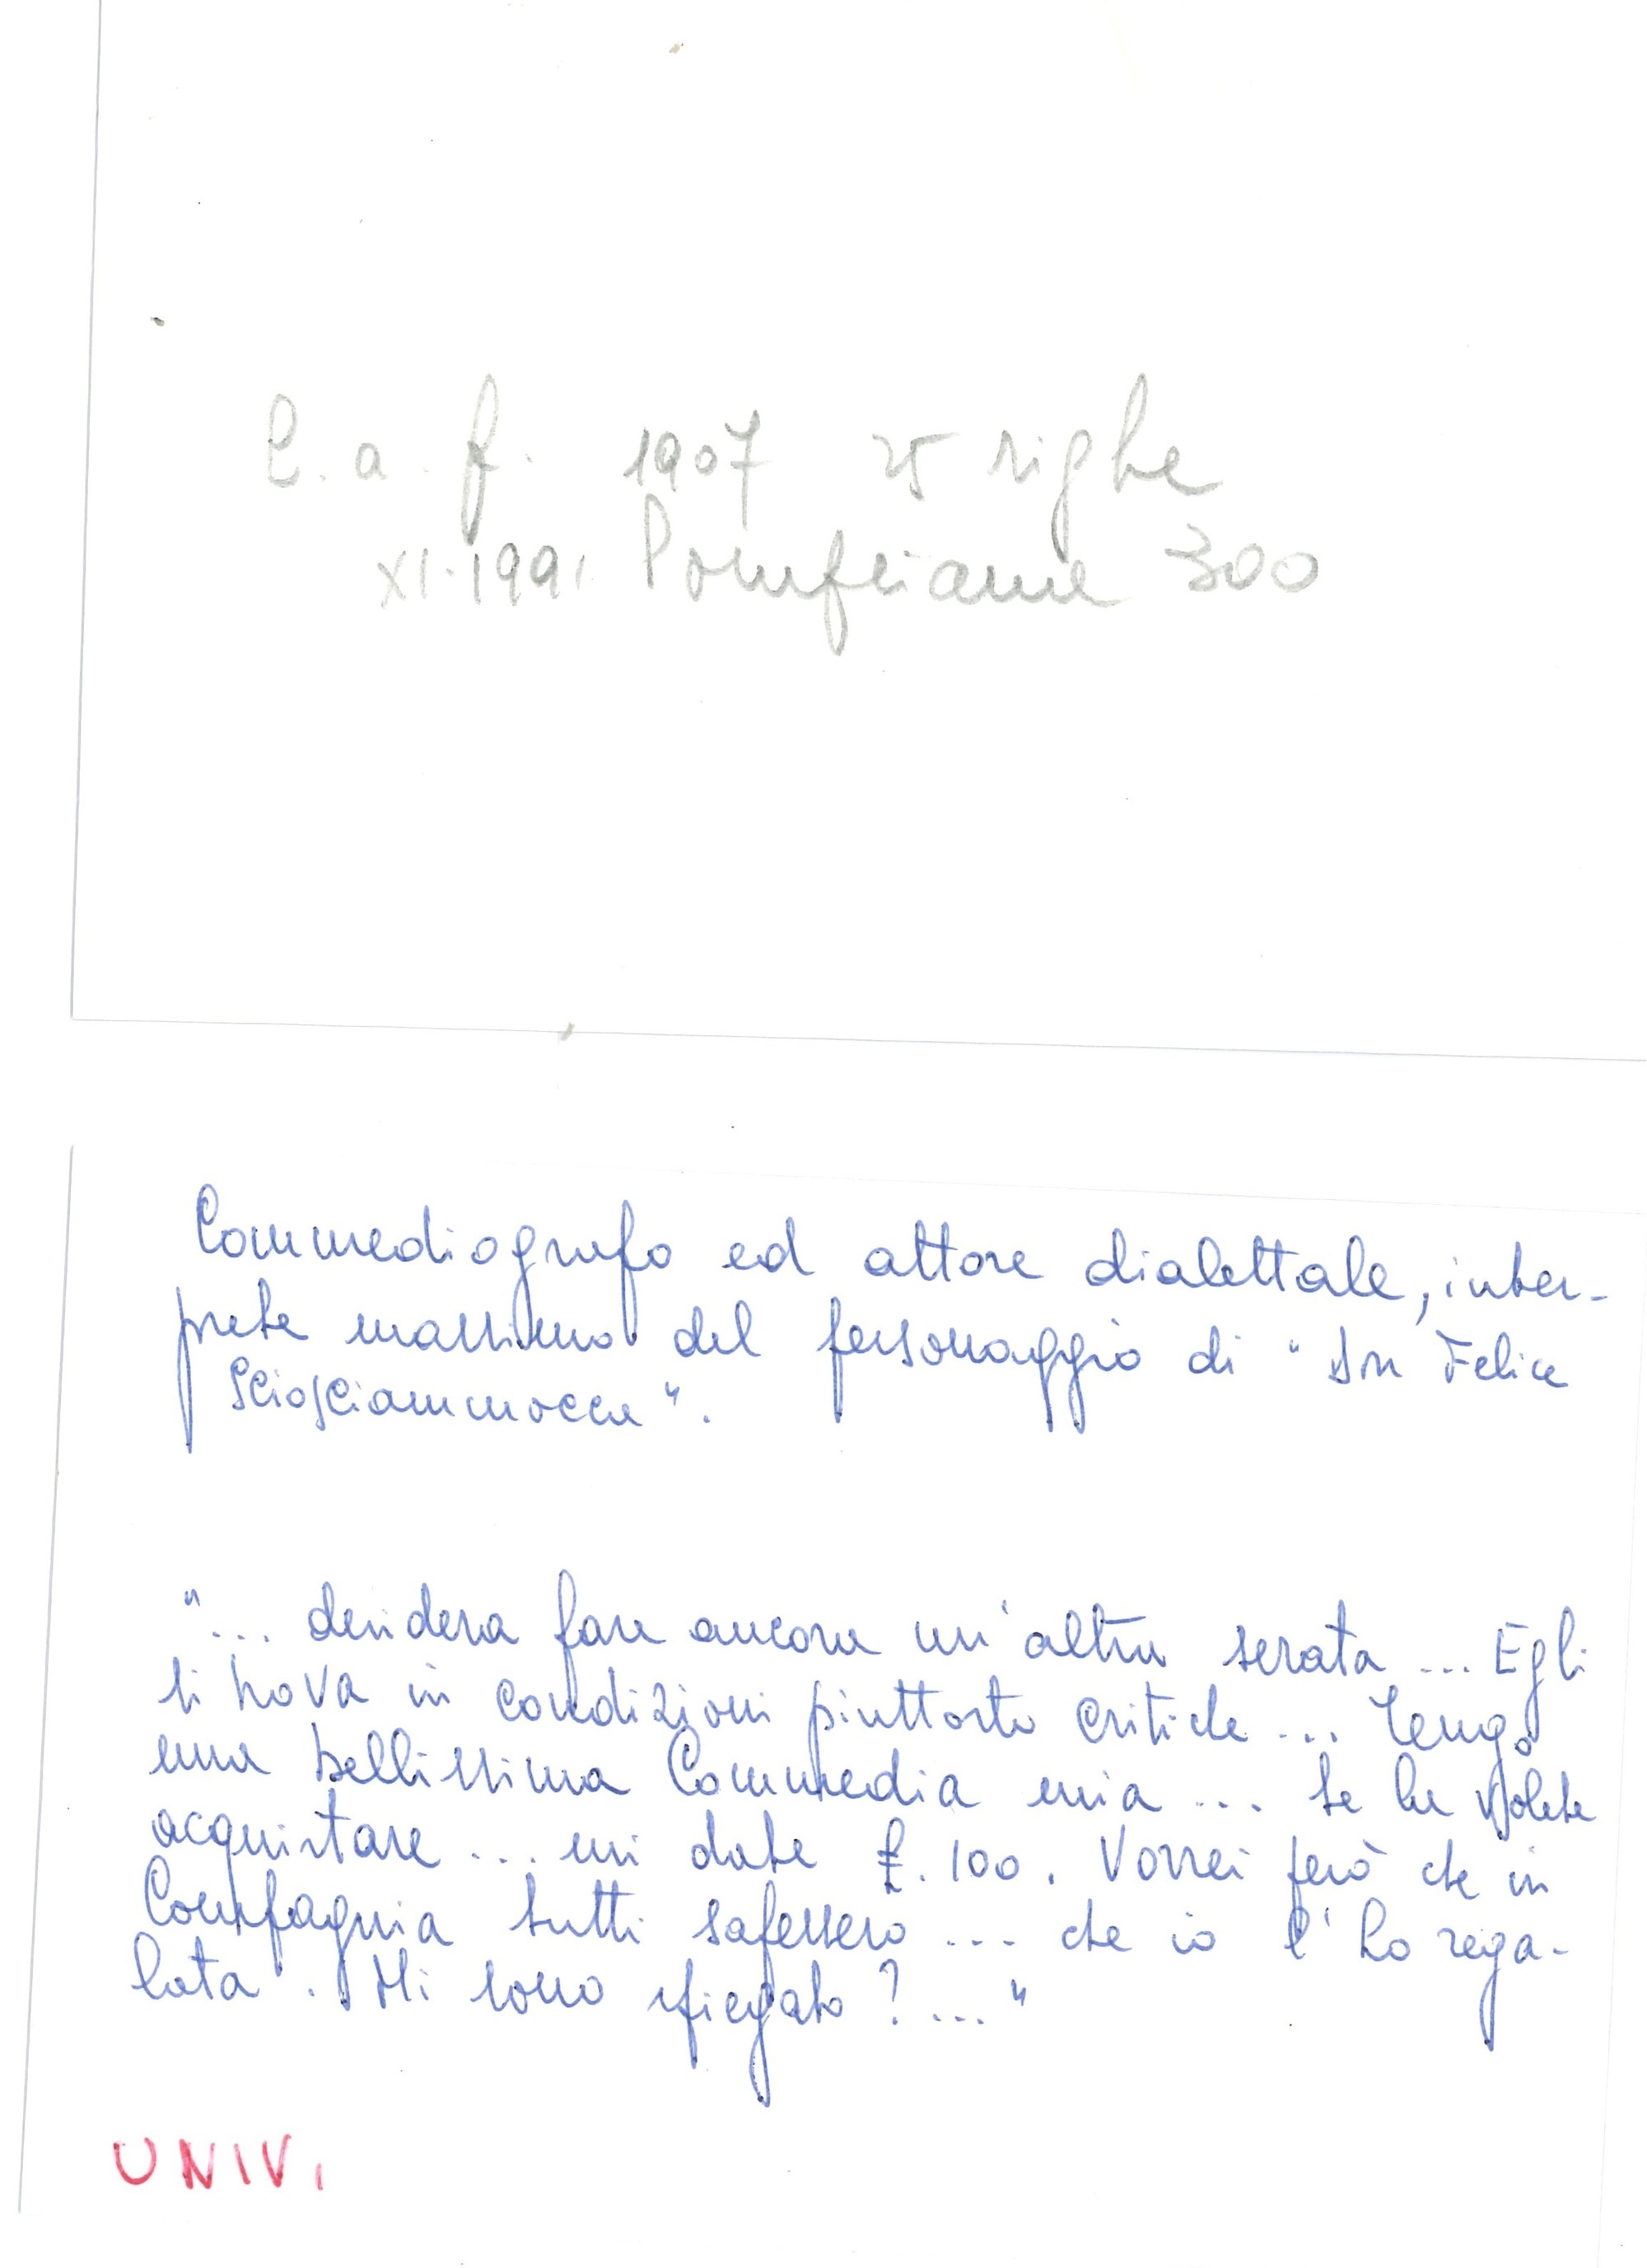 L. a. f. 1907 25 righe
XI.1991 Pompeiane 300
Commediografo ed attore dialettale, inter-
prete massimo del personaggio di "Don Felice
Sciosciammocca".
"... desidera fare ancora un'altra serata ... Egli
si trova in condizioni piuttosto critiche ... Tengo
una bellissima Commedia mia ... se la volete
acquistare ... mi date £. 100. Vorrei però che in
Compagnia tutti sapessero ... che io l'ho rega-
lata. Mi sono spiegato? ..."
UNIV.